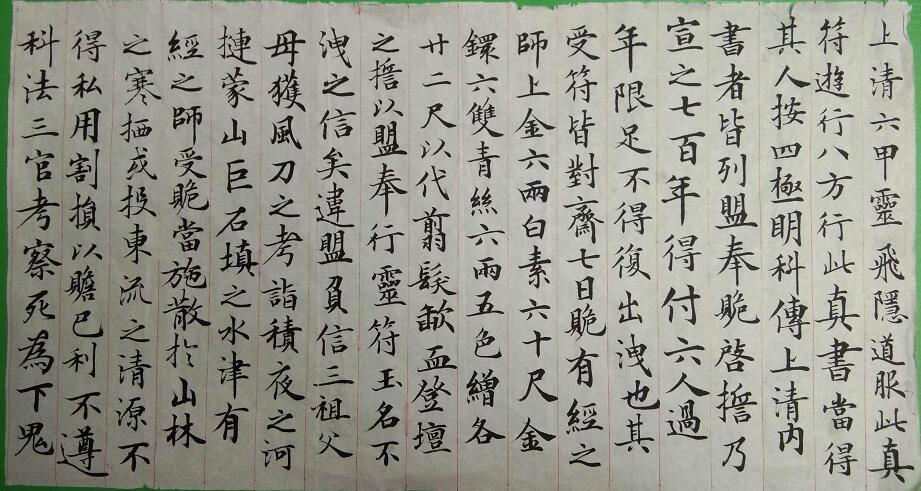 上清六甲靈飛隱道服此真
符遊行八方行此真書當得
其人按四極明科傳上清內
書者皆列盟奉贶啓擔乃
宣之七百年得付六人過
年限足不得復出洩也其
受符皆對齋七日贶有經之
師上金六兩白素六十尺金
鐶六雙青絲六兩五色繒各
廿二尺以代翦髮歃血登壇
之擔以盟奉行靈符玉名不
洩之信矣違盟負信三祖父
母獲風刀之考詣積夜之河
摙蒙山巨石填之水津有
經之師受贶當施散於山林
之寒栖或投東流之清源不
得私用割損以贍己利不遵
科法三官考察死為下鬼